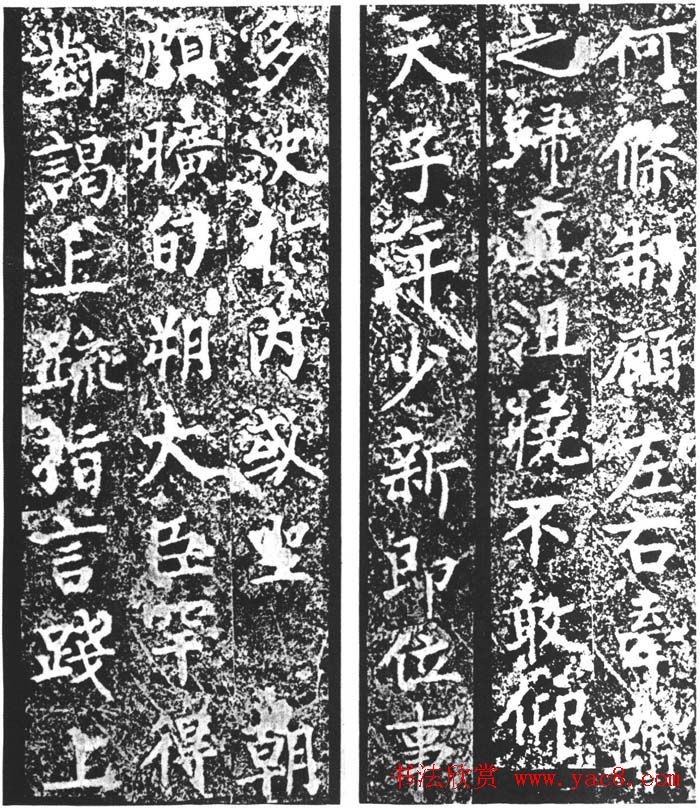 何條制願左右
之歸真沮撓不敢仰
天子年少新即位事
多決於內或坐朝
頗曠旬朔大臣罕得
對謁上疏指言踐上
书法欣赏 www.yac8.com